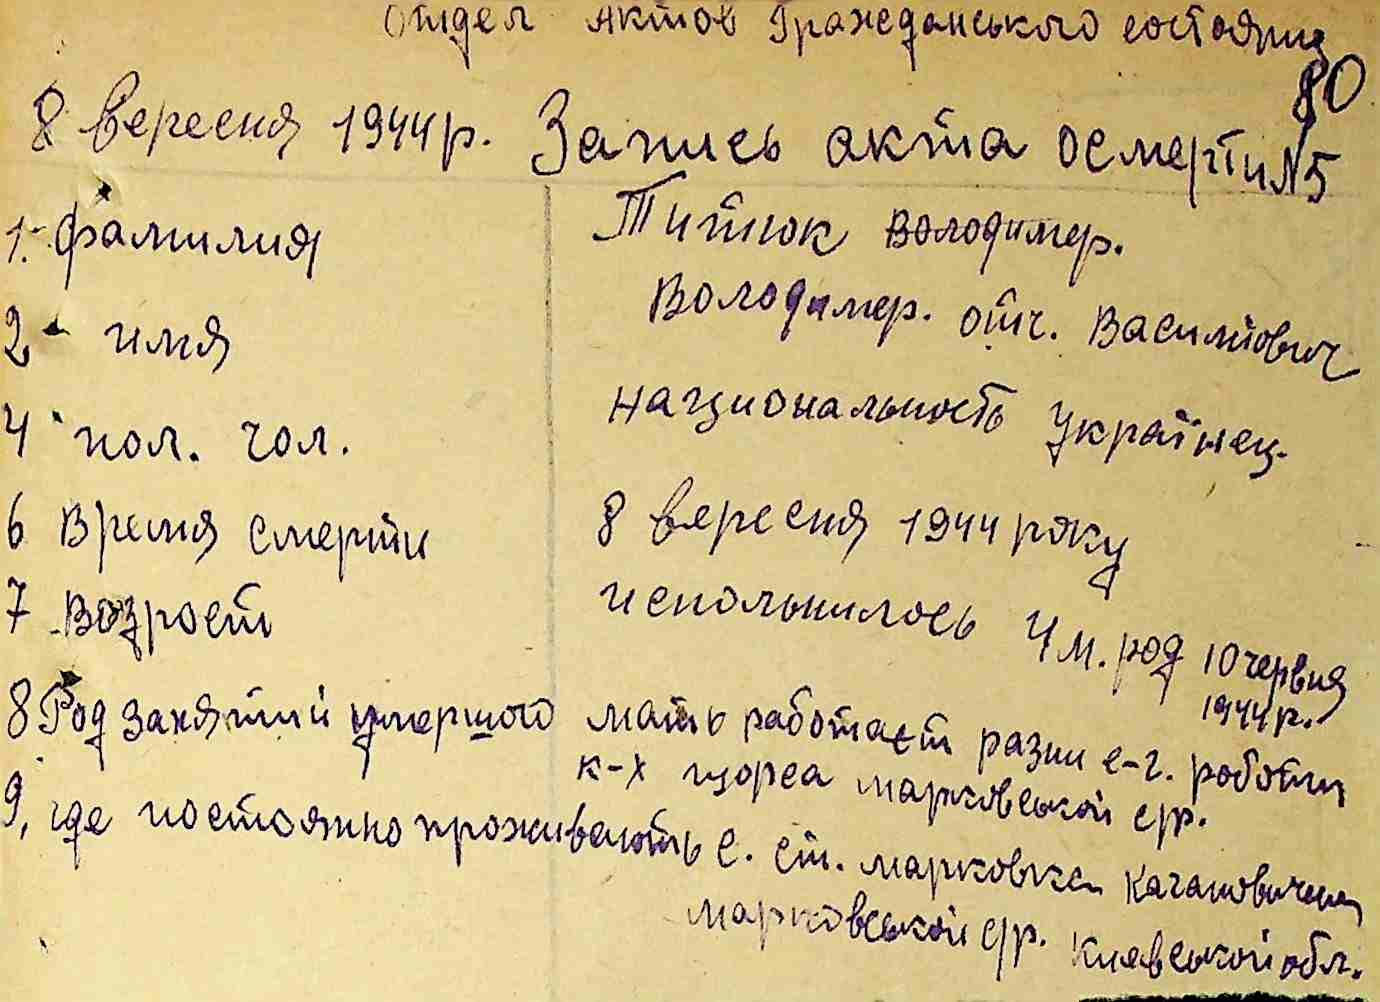 Отдел Актов Гражданського состояния
80
8 Вересня 1944р. Запись акта осмерти №5
1. Фамилия Титюк Володимер.
2 имя Володимер. отч. Василович
4 пол. чол. национальность Українец.
6 Время смерти 8 вересня 1944 року
7 Возрост испольнилось 4 м. род 10 червня
1944р.
8 Род занятий умершого мать работает разии с-г. роботи
к-х щорса марковськой с/р.
9, где постояжно проживають с. ст. марковка Кагановичеки
марковськой с/р. Киевськой обл.